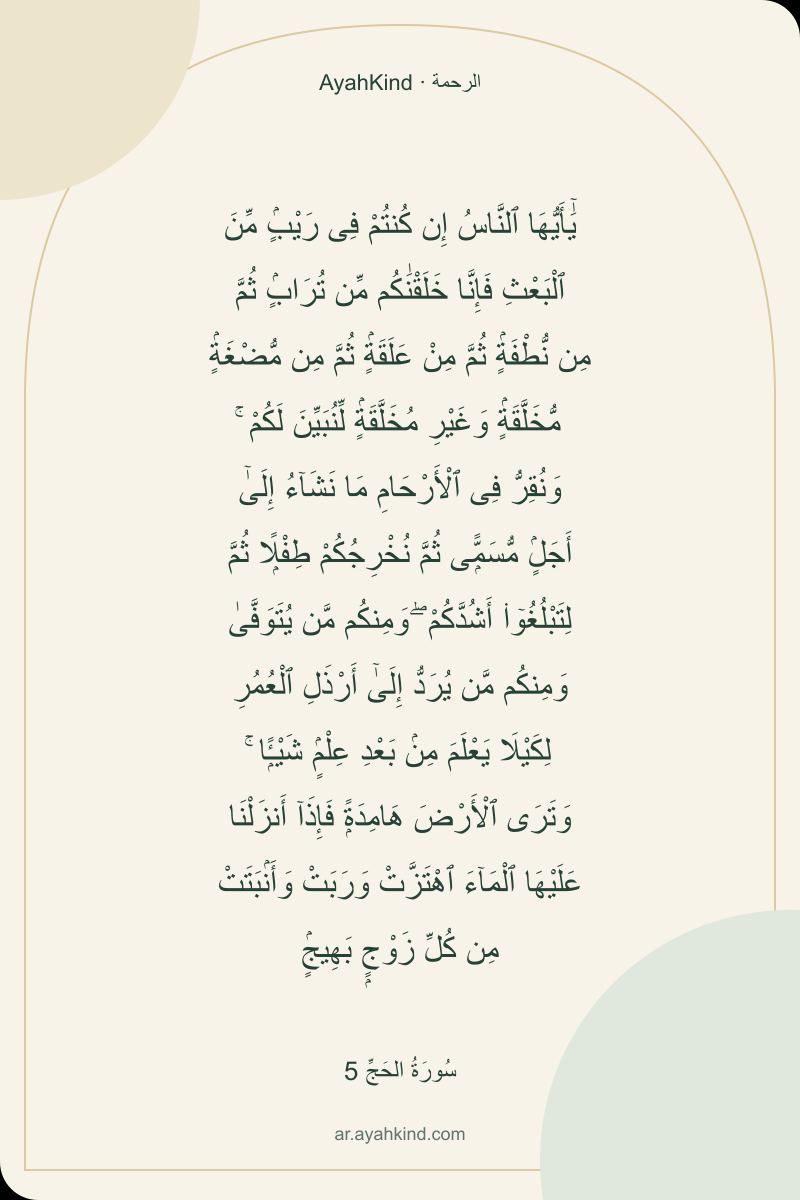 AyahKind · الرحمة
يَٰٓأَيُّهَا ٱلنَّاسُ إِن كُنتُمْ فِى رَيْبٍۢ مِّنَ
ٱلْبَعْثِ فَإِنَّا خَلَقْنَٰكُم مِّن تُرَابٍۢ ثُمَّ
مِن نُّطْفَةٍۢ ثُمَّ مِنْ عَلَقَةٍۢ ثُمَّ مِن مُّضْغَةٍۢ
مُّخَلَّقَةٍۢ وَغَيْرِ مُخَلَّقَةٍۢ لِّنُبَيِّنَ لَكُمْ ۚ
وَنُقِرُّ فِى ٱلْأَرْحَامِ مَا نَشَآءُ إِلَىٰٓ
أَجَلٍۢ مُّسَمًّۭى ثُمَّ نُخْرِجُكُمْ طِفْلًۭا ثُمَّ
لِتَبْلُغُوٓا۟ أَشُدَّكُمْ ۖ وَمِنكُم مَّن يُتَوَفَّىٰ
وَمِنكُم مَّن يُرَدُّ إِلَىٰٓ أَرْذَلِ ٱلْعُمُرِ
لِكَيْلَا يَعْلَمَ مِنۢ بَعْدِ عِلْمٍۢ شَيْـًۭٔا ۚ
وَتَرَى ٱلْأَرْضَ هَامِدَةًۭ فَإِذَآ أَنزَلْنَا
عَلَيْهَا ٱلْمَآءَ ٱهْتَزَّتْ وَرَبَتْ وَأَنۢبَتَتْ
مِن كُلِّ زَوْجٍۭ بَهِيجٍۢ
سُورَةُ الحَجِّ 5
ar.ayahkind.com